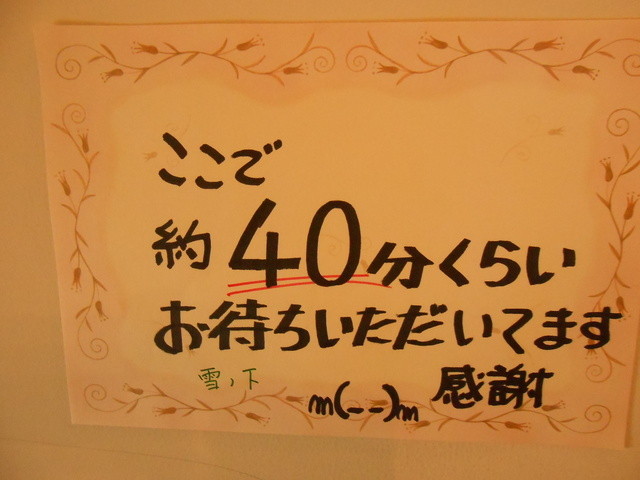 ここで
約40分くらい
お待ちいただいてます
雪ノ下
m(--)m 感謝